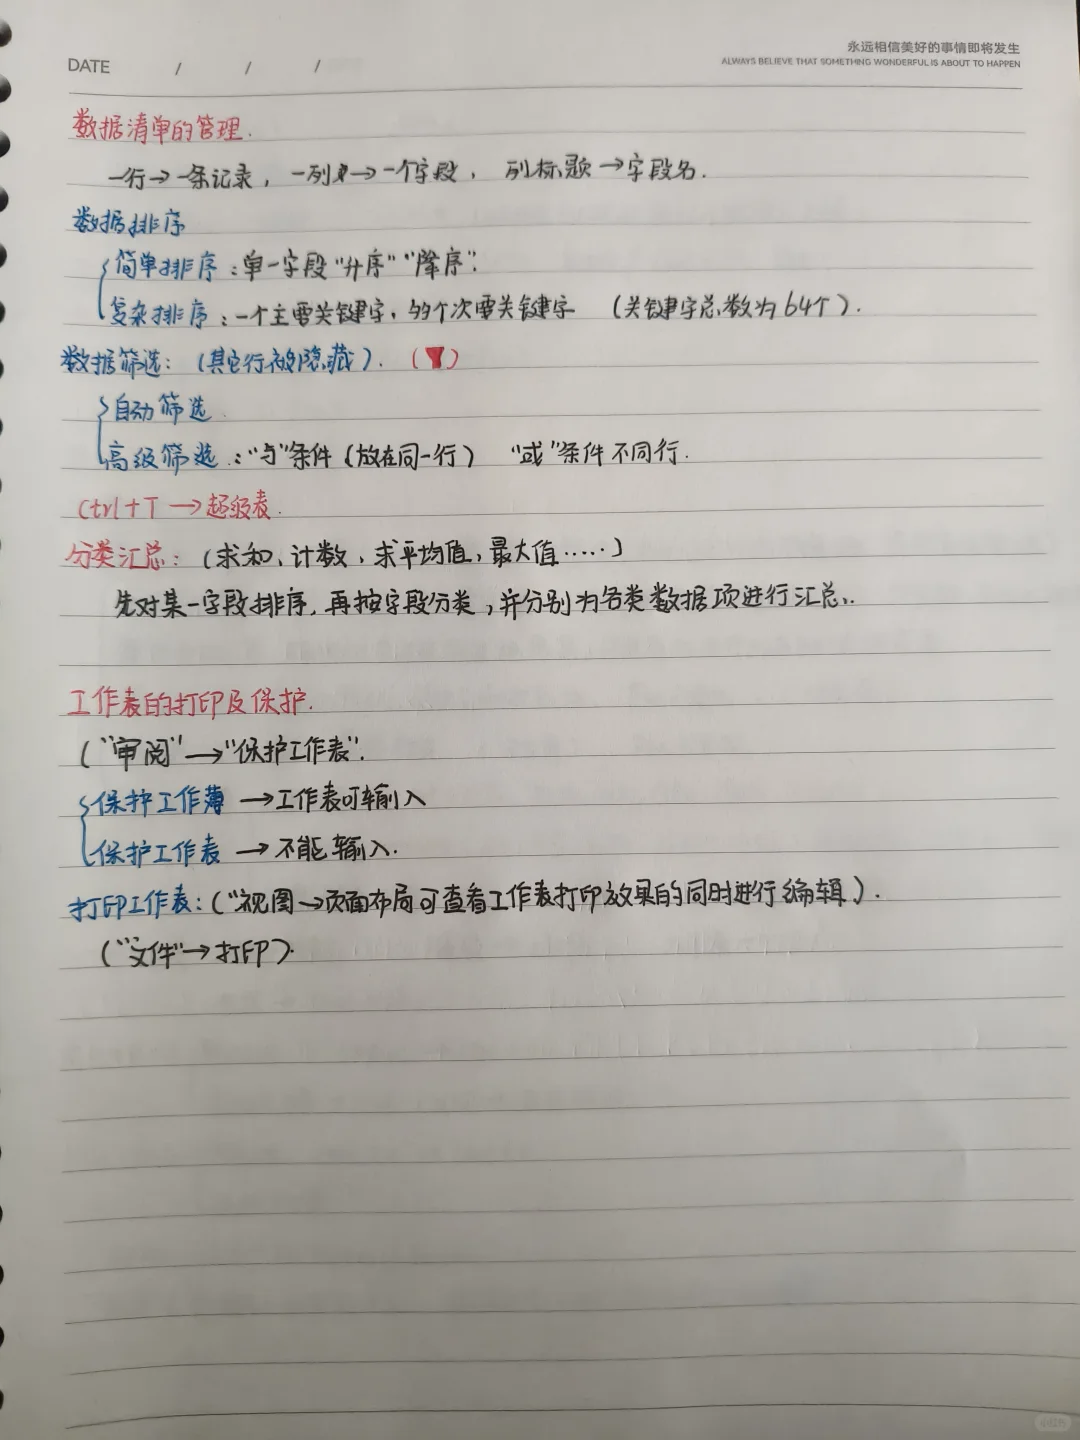 永远相信美好的事情即将发生
DATE / / /
ALWAYS BELIEVE THAT SOMETHING WONDERFUL IS ABOUT TO HAPPEN
数据清单的管理.
一行→一条记录, 一列→一个字段, 列标题→字段名.
数据排序
简单排序:单一字段"升序""降序".
复杂排序:一个主要关键字,多个次要关键字 (关键字总数为64个).
数据筛选:(其它行被隐藏).(▼)
自动筛选.
高级筛选:"与"条件(放在同一行) "或"条件不同行.
Ctrl+T→超级表.
分类汇总:(求和、计数、求平均值,最大值……)
先对某一字段排序,再按字段分类,并分别为各类数据项进行汇总.
工作表的打印及保护.
("审阅"→"保护工作表".
保护工作薄→工作表可输入
保护工作表→不能输入.
打印工作表:("视图→页面布局可查看工作表打印效果的同时进行编辑).
("文件"→打印).
小红书